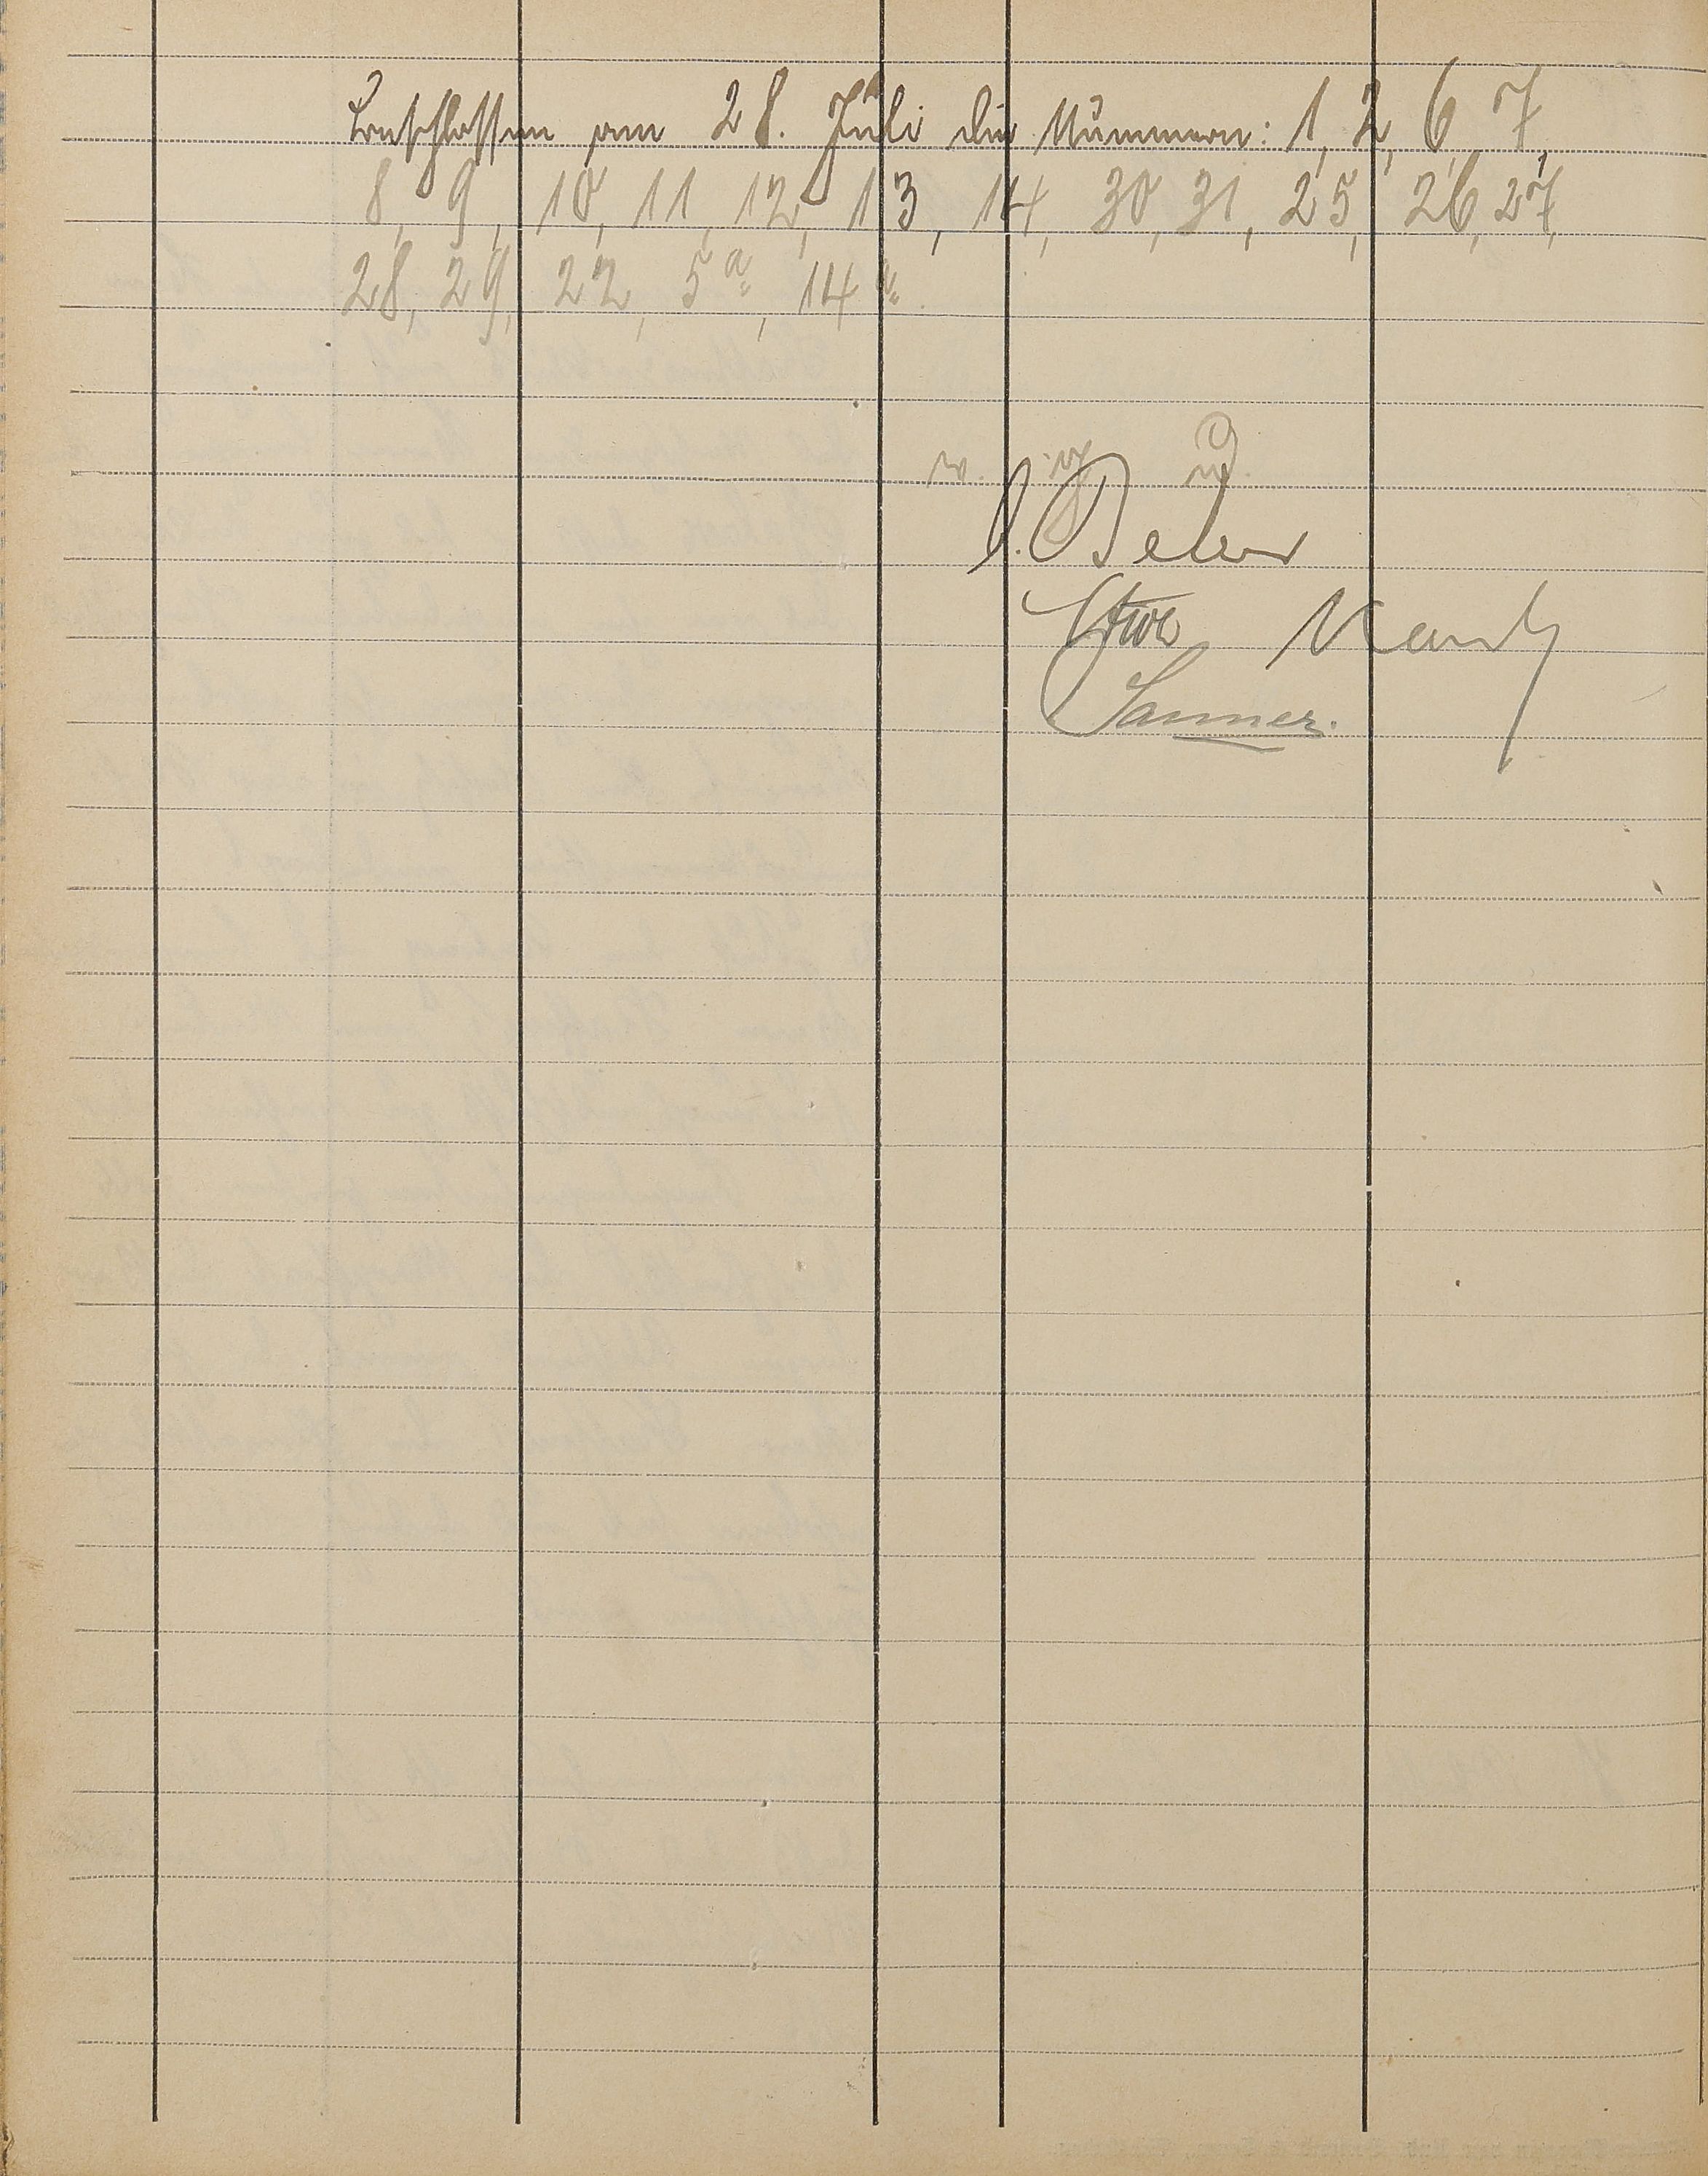 Beschlossen am 28. Juli die Nummern: 1, 2, 6, 7,
8, 9, 10, 11, 12, 13, 14, 30, 31, 25, 26, 27,
28, 29, 22, 5a, 14a.
v. g. u.
Sanner.